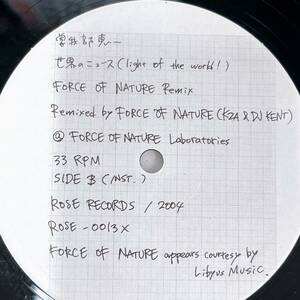 曽我部恵一
世界のニュース (light of the world!)
FORCE OF NATURE Remix
Remixed by FORCE OF NATURE (KZA & DJ KENT)
@ FORCE OF NATURE Laboratories
33 RPM
SIDE B (INST.)
ROSE RECORDS / 2004
ROSE-0013X
FORCE OF NATURE appears courtesy by
Libyus Music.